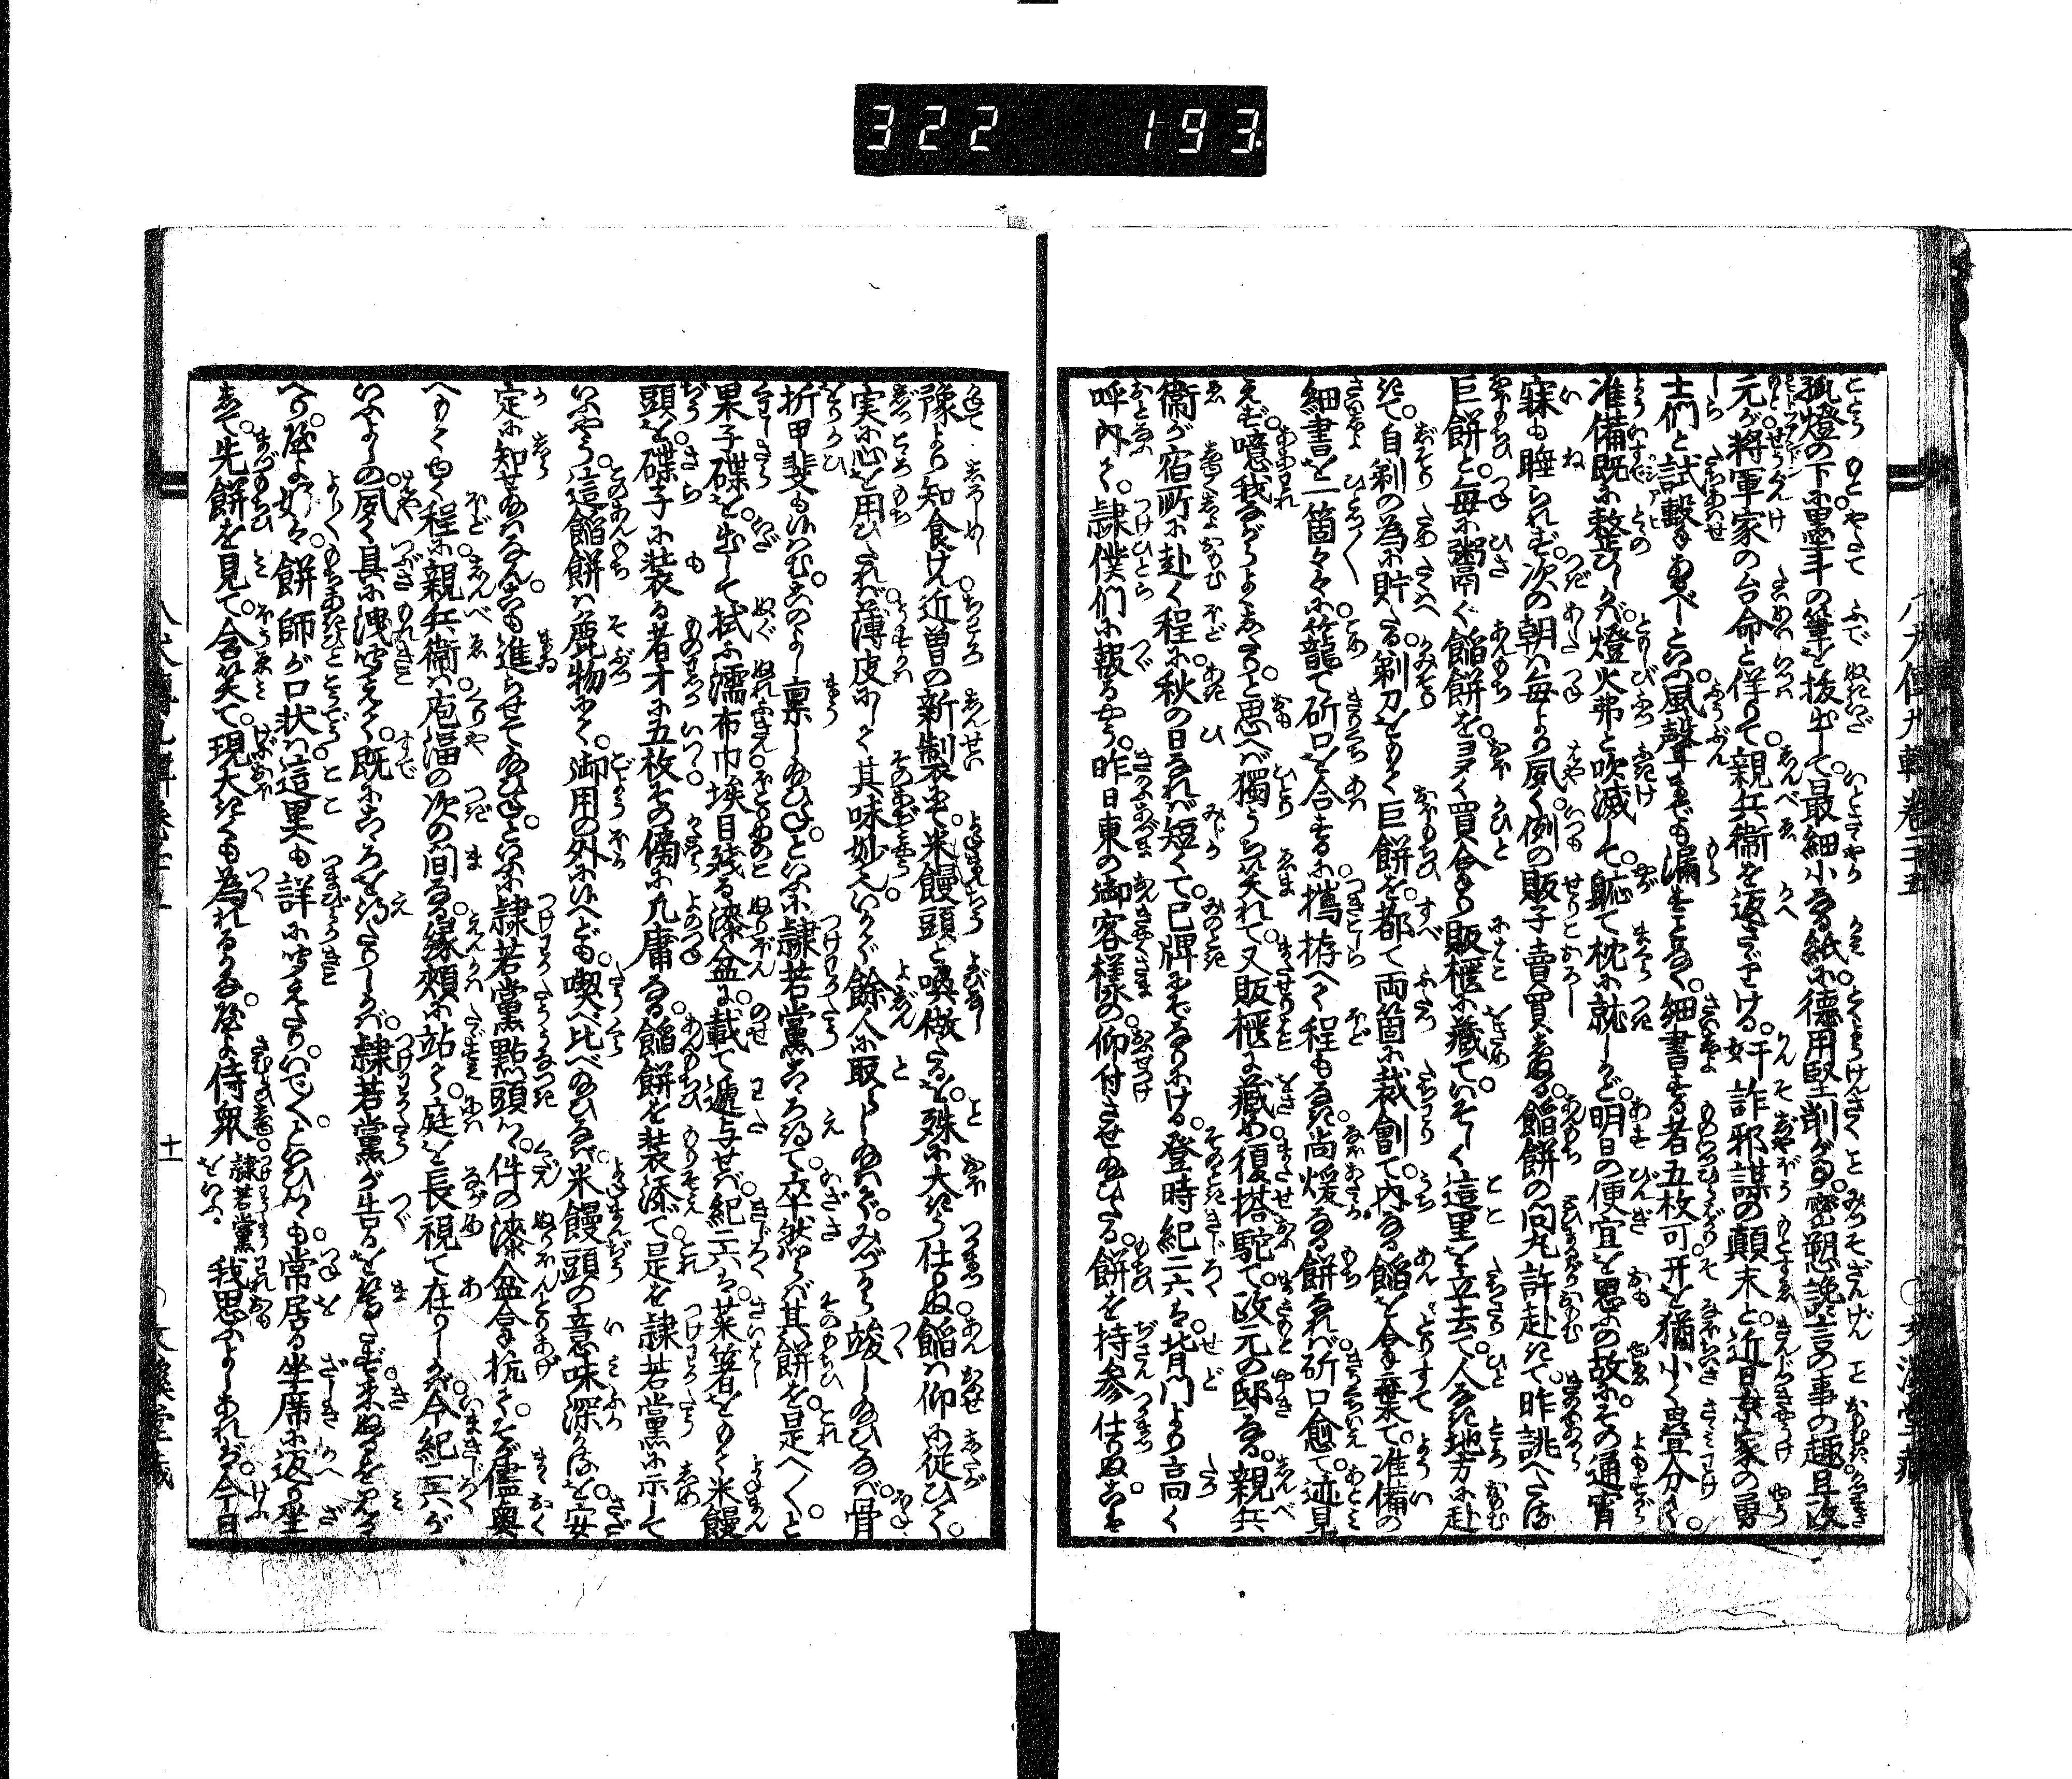 322 193
孤燈の下に墨斗の筆を抜出して。最細小なる紙に。徳用堅削が密懇讒言の事の趣。且政
元が将軍家の台命と佯りて。親兵衛を返さゞりける。奸詐邪謀の顛末と。近日京家の勇
士們と試撃あるべしといふ風聲までも漏すことなく。細書する者五枚可。开を猶小く畳分ちて。
准備既に整ひしかば。燈火弗と吹滅して。軈て枕に就しかど。明日の便宜を思ふの故に。その通宵
寐も睡られず。次の朝は毎より夙く。例の販子賣買する。餡餅の問丸許赴きて。昨誂へたる
巨餅と。毎に粥ぐ餡餅を。夥く買合より販櫃に蔵て。いそしく這里を立去て。人なき地方に赴
きて。自剃の為に貯たる。剃刀をもて巨餅を。都て両箇に裁劊て。内なる餡を合棄て。准備の
細書を一箇々々に籠て。斫口を合するに。搗拵へて程もなき。尚煖なる餅なれば。斫口愈て迹見
えず。噫我ながらよくしたりと思へば獨うち笑れて。又販櫃に蔵め復搭駝て。政元の邸なる。親兵
衛が宿所に赴く程に。秋の日なれば短くて。巳牌にぞなりにける。登時紀二六は。背門より高く
呼内て。隷僕們に報るやう。昨日東の御客様の。仰付させ給ひたる。餅を持参仕りぬ。こは
豫より知食けん。近曽の新製にて。米饅頭と喚做たるを。殊に大きう仕りぬ。餡は仰に従ひて。
実に心を用ひたれば。薄皮にして其味妙也。いかで餘人に取らし給はで。みづから竣し給ひなば。骨
折甲斐も候はむ。このよし稟し給ひねといふに隷若黨こゝろ得て。卒然らば其餅を。是へ〳〵と
果子碟を。出して拭ふ濡布巾。埃目残る漆盆に載て遞与せば紀二六は。菜箸をもて米饅
頭を。碟子に装る者才に五枚。その傍に凡庸なる。餡餅を装添て。是を隷若黨に示して
いふやう。這餡餅は麁物にて。御用の外に候へども。喫べ比べ給ひなば。米饅頭の意味深かるを。安
定に知せ給はなん。こも進らせて給ひねといふに。隷若黨點頭て。件の漆盆合抗て。そが儘奥
へもてゆく程に。親兵衛は庖湢の次の間なる。縁頬に站て。庭を長視て在りしかば。今紀二六が
いふよしの。夙く具に洩聞えて。既にこゝろを得たりしかば。隷若黨が告るを俟たず。来ぬるを見かへり
へり。餅師が口状は。這里も詳に聞えたり。いで〳〵といひつゝも。常居る坐席に返り坐
して。先餅を見て含笑て。現大きくも為れるかな。侍衆隷若黨をいふ。我思ふよしあれば。今日
八犬傳九輯巻二十五
十一
文渓堂蔵